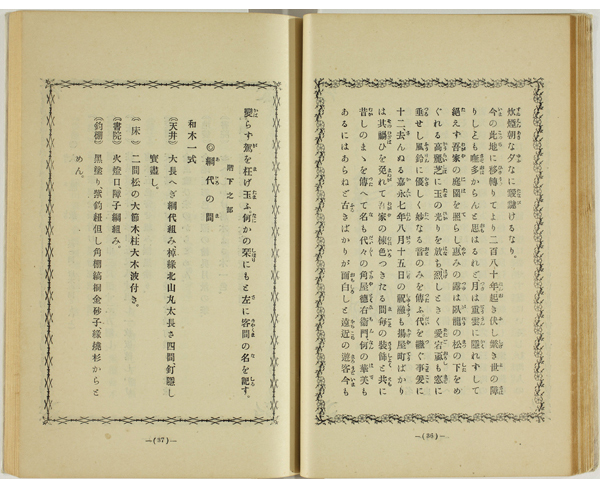 炊煙朝な夕なに
今の此地に移轉りてより二百八十年起き伏し繁き世の障
りしとも嘸多からんと思はるれど月は重雲に隱れずして
絕えず吾家の庭園を照らし惠みの露は臥龍の松の下をめ
ぐれる高麗芝に玉の光りを放ち烈しときく愛宕颪も窓に
垂せし風鈴に優しく妙なる音のみを傳ふ代を繼ぐ事爰に
十二去んぬる嘉永七年八月十五日の祝融も揚屋町ばかり
は其禍ひを免れて吾家の棟色つきたる間每の裝飾と共に
昔しのまゝを傳へて名も代々の角屋德右衞門何の華美も
あるにはあらねど古きばかりが面白しと遠近の遊客今も
―(36)―
變らず駕を枉げ玉ふ何かの栞にもと左に客間の名を記す。
階下之部
◎網代の間
和木一式
《天井》 大長へぎ網代組み棹緣北山丸太長さ四間釘隱し
寶盡し。
《床》 二間松の大節木柱大木波付き。
《書院》 火燈口障子網組み。
《釣棚》 黑塗り 釣紐但し角棚縞桐金砂子緣 杉からと
めん。
―(37)―